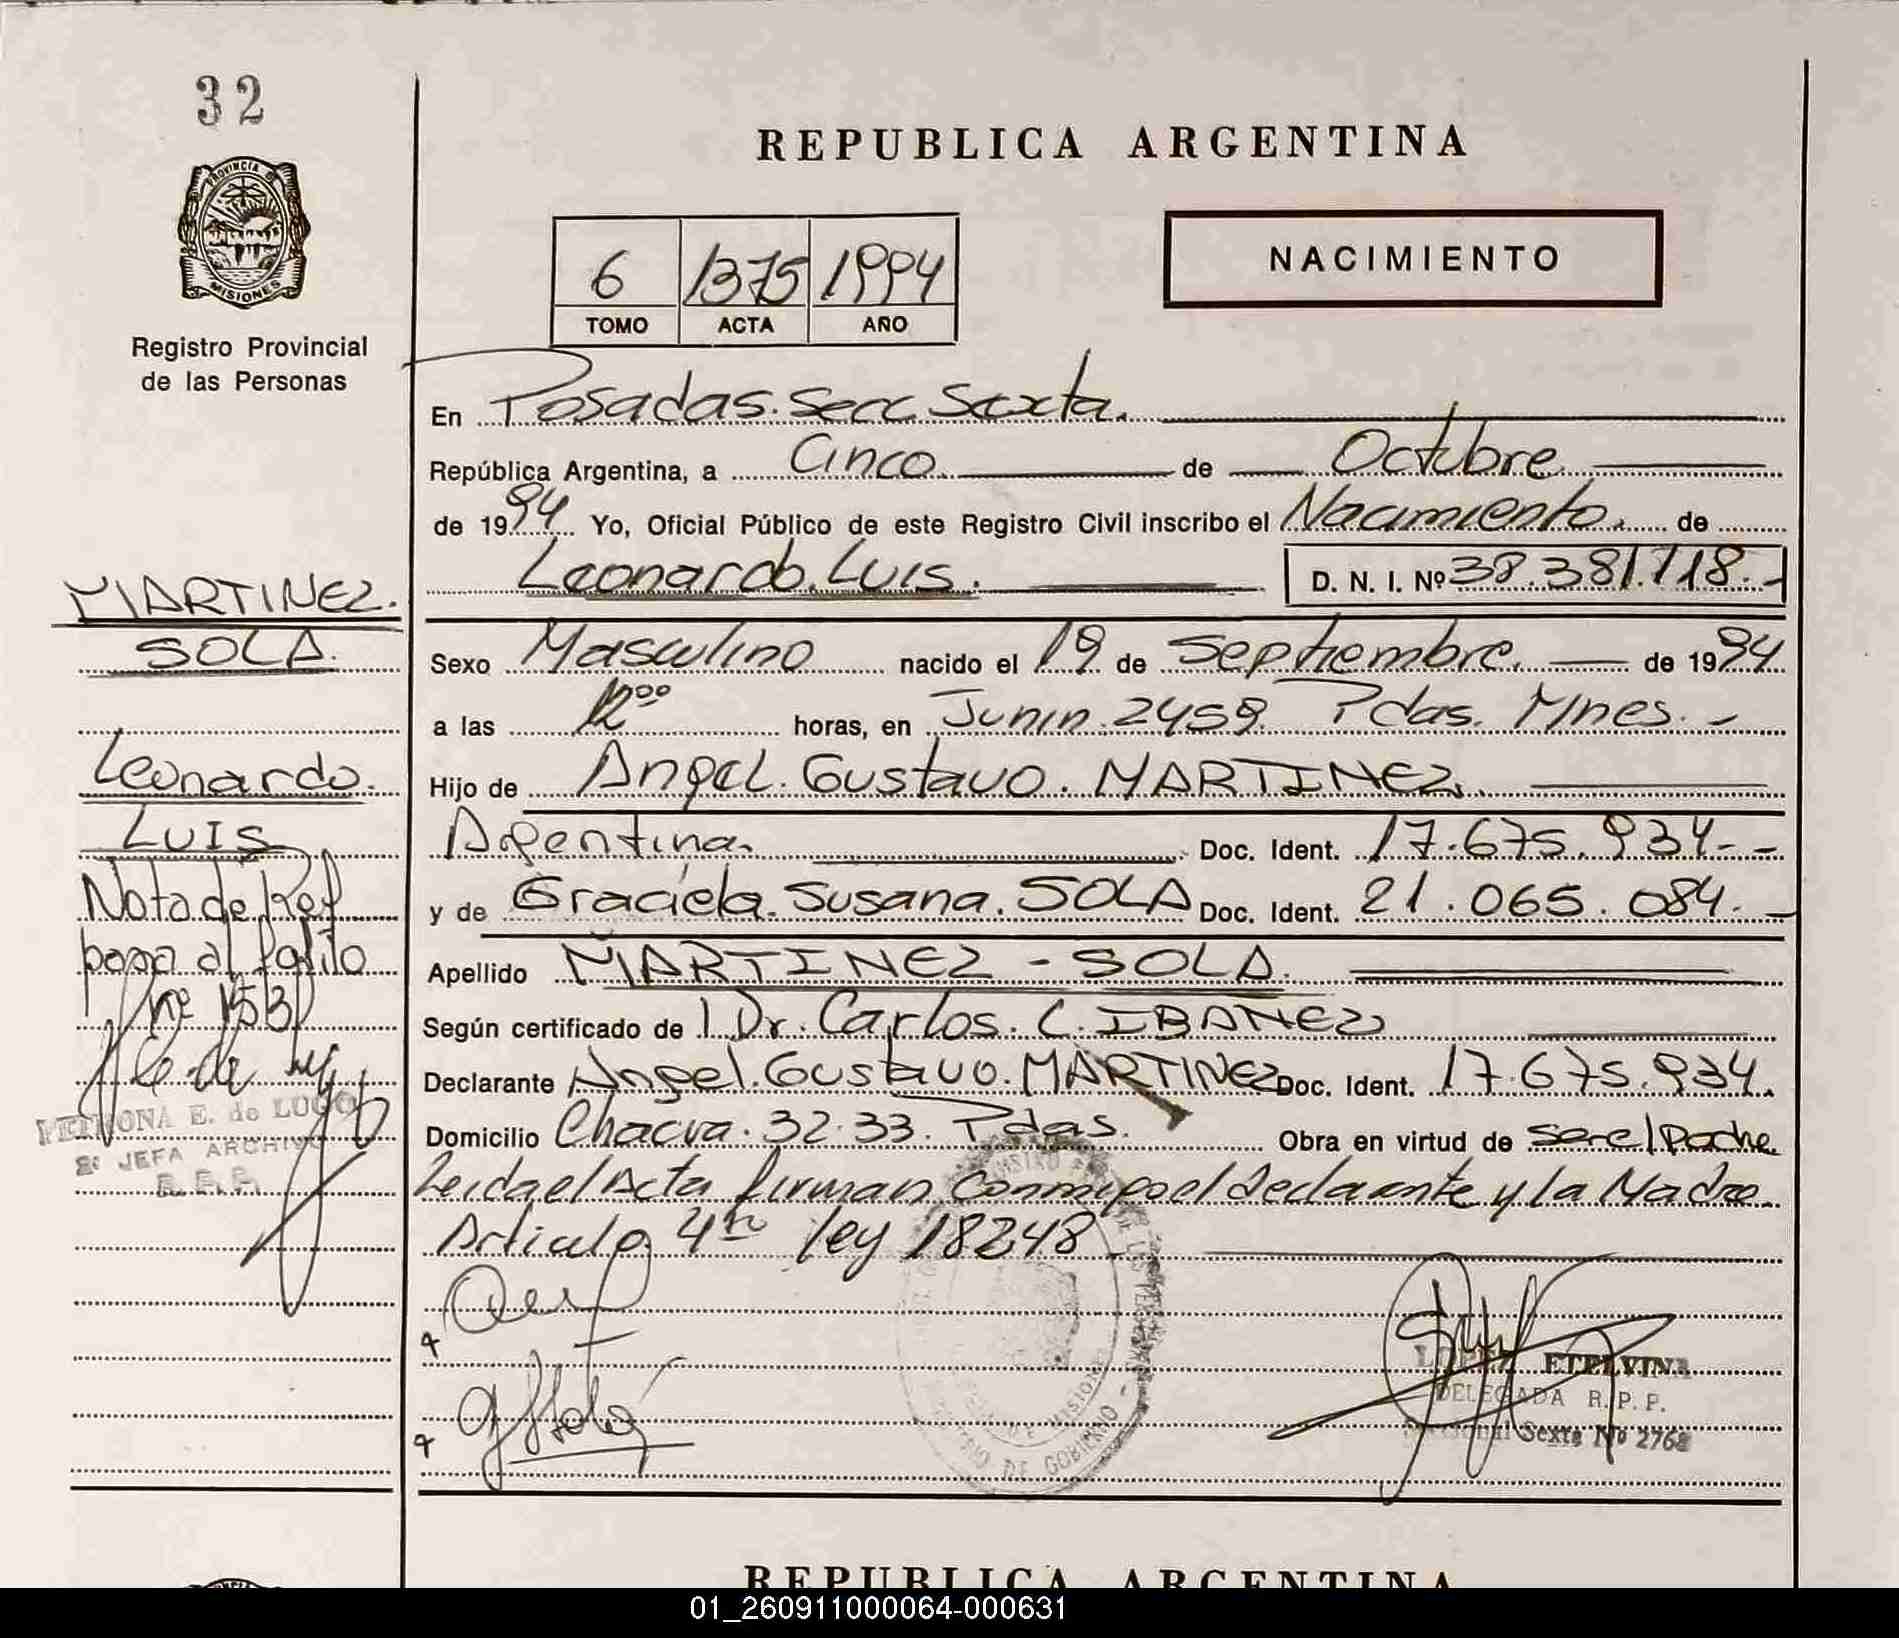 32
REPUBLICA ARGENTINA
PROVINCIA DE
MISIONES
Registro Provincial
de las Personas
6 1375 1994
TOMO ACTA AÑO
NACIMIENTO
En Posadas. Secc. Sexta.
República Argentina, a Cinco de Octubre
de 1994 Yo, Oficial Público de este Registro Civil inscribo el Nacimiento. de
Leonardo. Luis. D. N. I. Nº 38.381.718.-
Sexo Masculino nacido el 19 de Septiembre. de 1994
a las 12⁰⁰ horas, en Junin. 2459. Pdas. Mnes. -
Hijo de Angel. Gustavo. MARTINEZ.
Argentina. Doc. Ident. 17.675.934.--
y de Graciela. Susana. SOLA Doc. Ident. 21.065.084.-
Apellido MARTINEZ - SOLA.
Según certificado de Dr. Carlos. C. IBAÑEZ
Declarante Angel. Gustavo. MARTINEZ Doc. Ident. 17.675.934.
Domicilio Chacra. 32.33. Pdas. Obra en virtud de ser el padre
Leida el Acta firman conmigo el declarante y la Madre
Articulo 4to ley 18248
MARTINEZ.
SOLA.
Leonardo.
LUIS
Nota de Ref
nº 153
PETRONA E. de LUGO
2º JEFA ARCHIVO
R. P. P.
MINISTERIO DE GOBIERNO
LOPEZ ETELVINA
DELEGADA R. P. P.
Seccional Sexta Nº 2768
REPUBLICA ARGENTINA
01_260911000064-000631